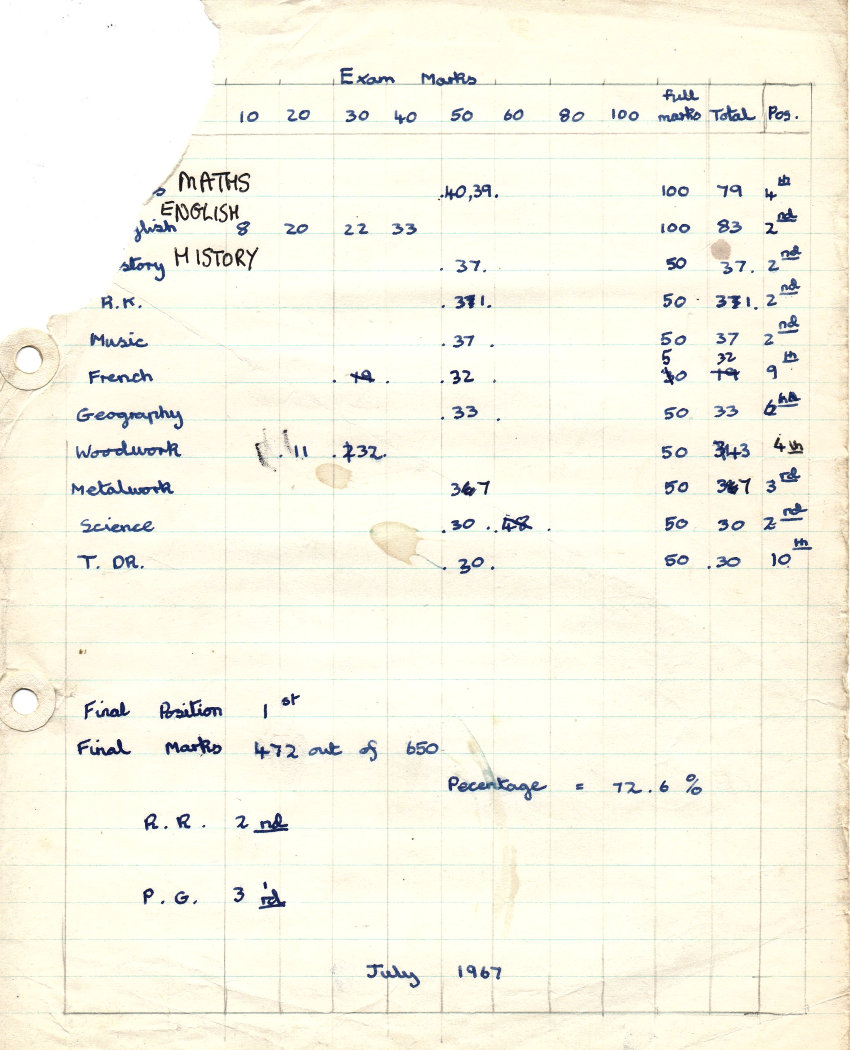 Exam Marks
10 20 30 40 50 60 80 100 full marks Total Pos.
MATHS 40,39. 100 79 4th
ENGLISH
glish 8 20 22 33 100 83 2nd
story HISTORY 37. 50 37. 2nd
R.K. 50 2nd
Music 37. 50 37 2nd
French 19 32 50 32 19 9th
Geography 33. 50 33
Woodwork 11 32. 50 43 4th
Metalwork 37 50 37 3rd
Science 30 48 50 30 2nd
T. DR. 30. 50 30 10th
Final Position 1st
Final Marks 472 out of 650
Pecentage = 72.6 %
R.R. 2nd
P.G. 3rd
July 1967